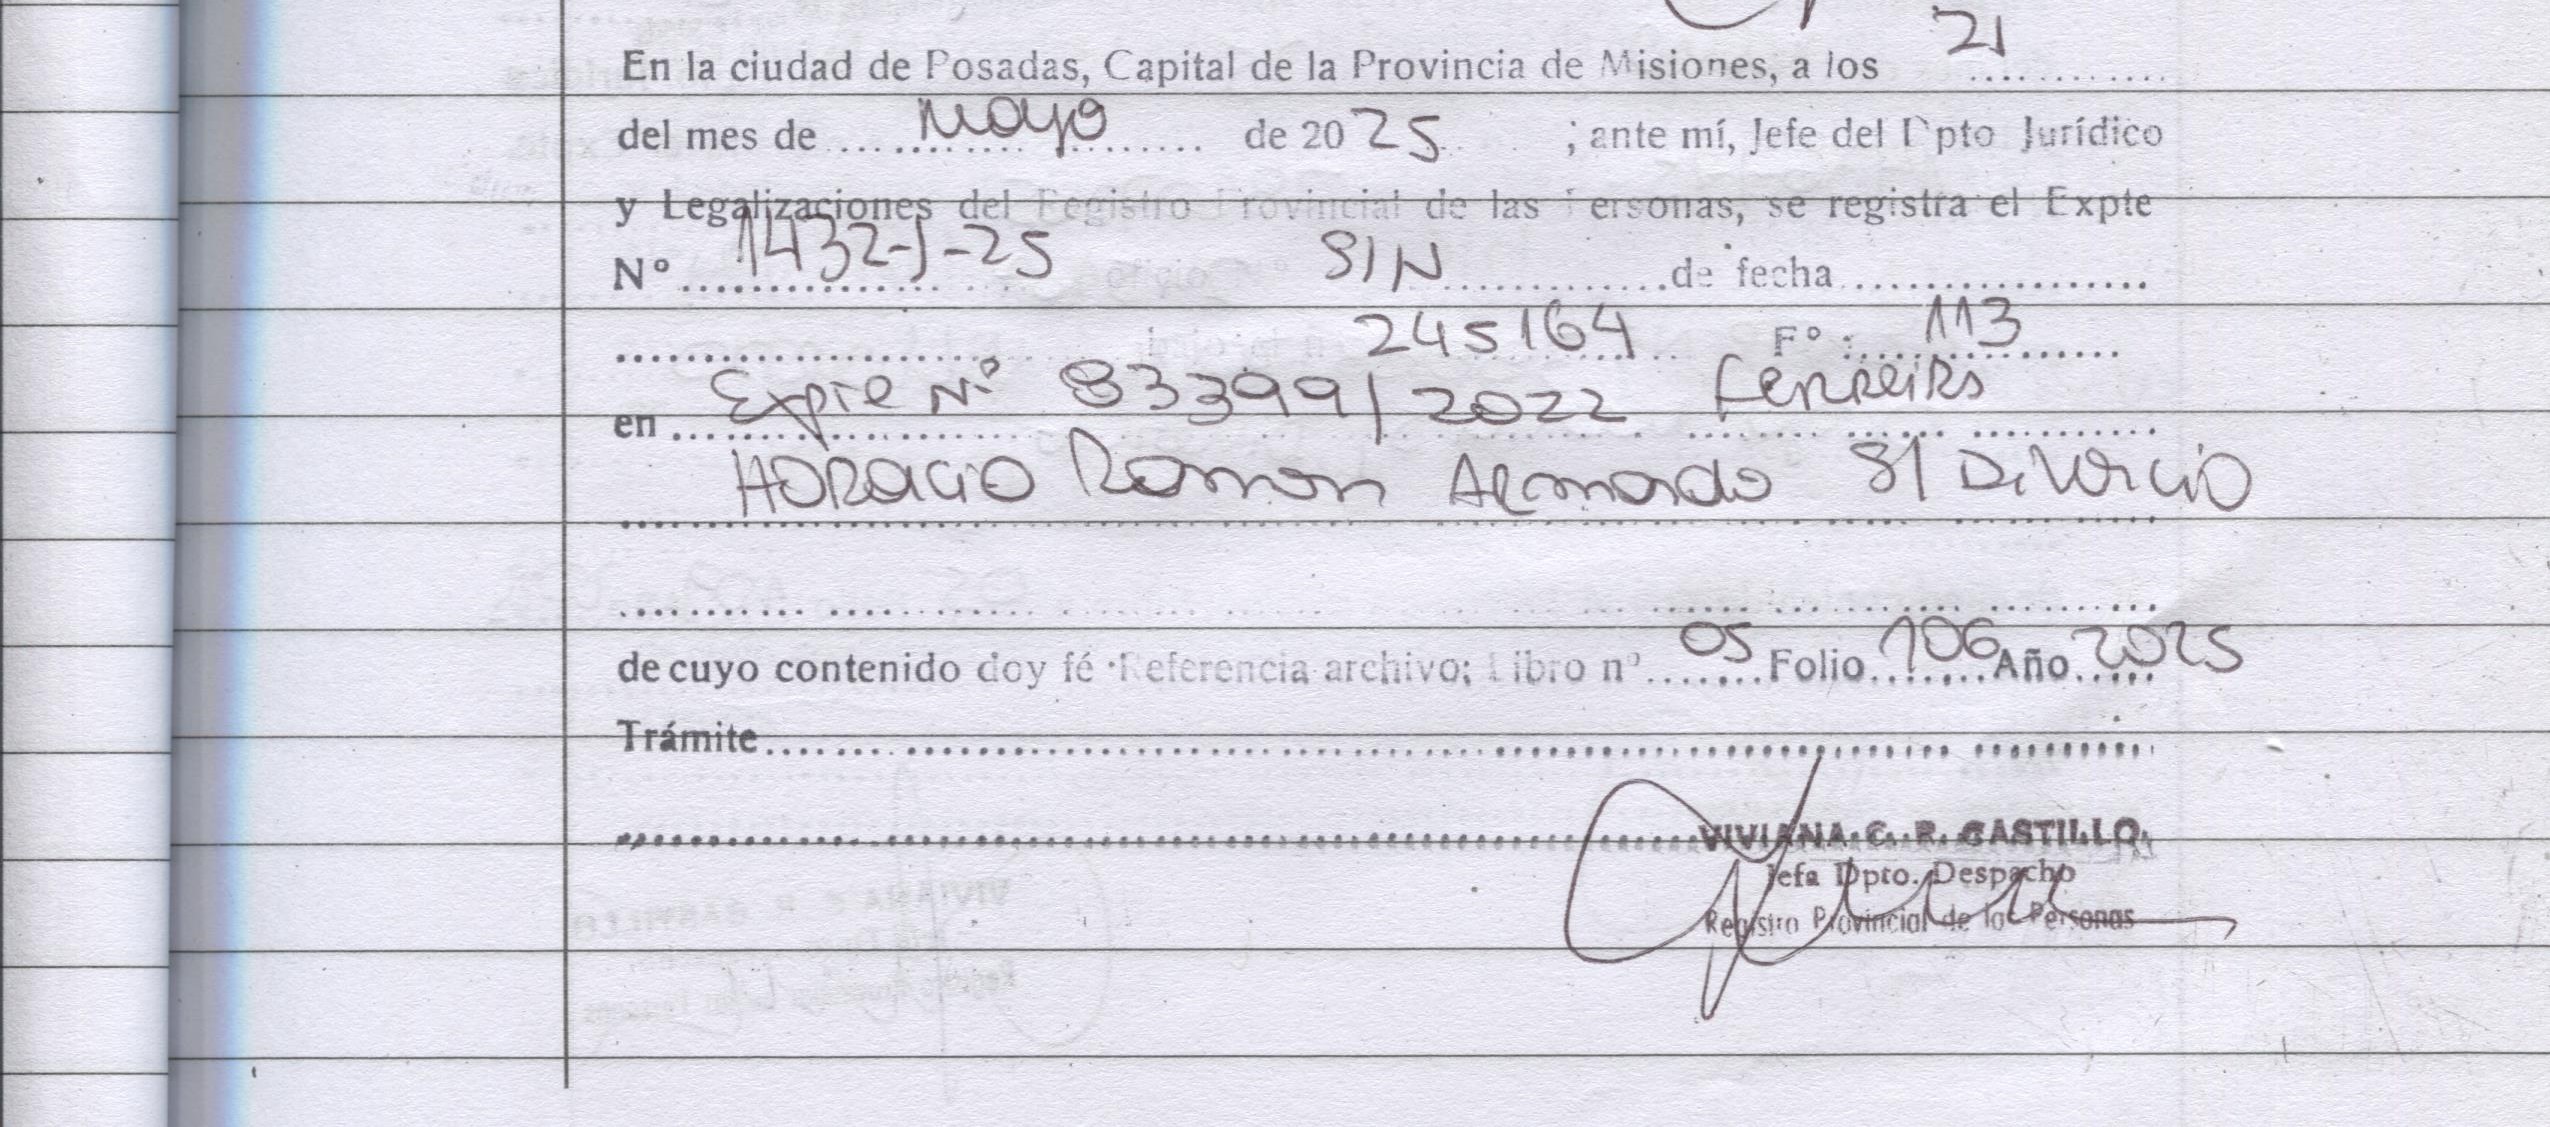 En la ciudad de Posadas, Capital de la Provincia de Misiones, a los 21
del mes de mayo de 2025 ; ante mí, Jefe del Dpto Jurídico
y Legalizaciones del Registro Provincial de las Personas, se registra el Expte
Nº 1432-J-25 S/N de fecha
245164 Fº : 113
en Expte Nº 83399/2022 Ferreira
HORACIO Ramon Armando S/ Divorcio
de cuyo contenido doy fé Referencia archivo; Libro nº 05 Folio 106 Año 2025
Trámite
VIVIANA C. R. CASTILLO
Jefa Dpto. Despacho
Registro Provincial de las Personas